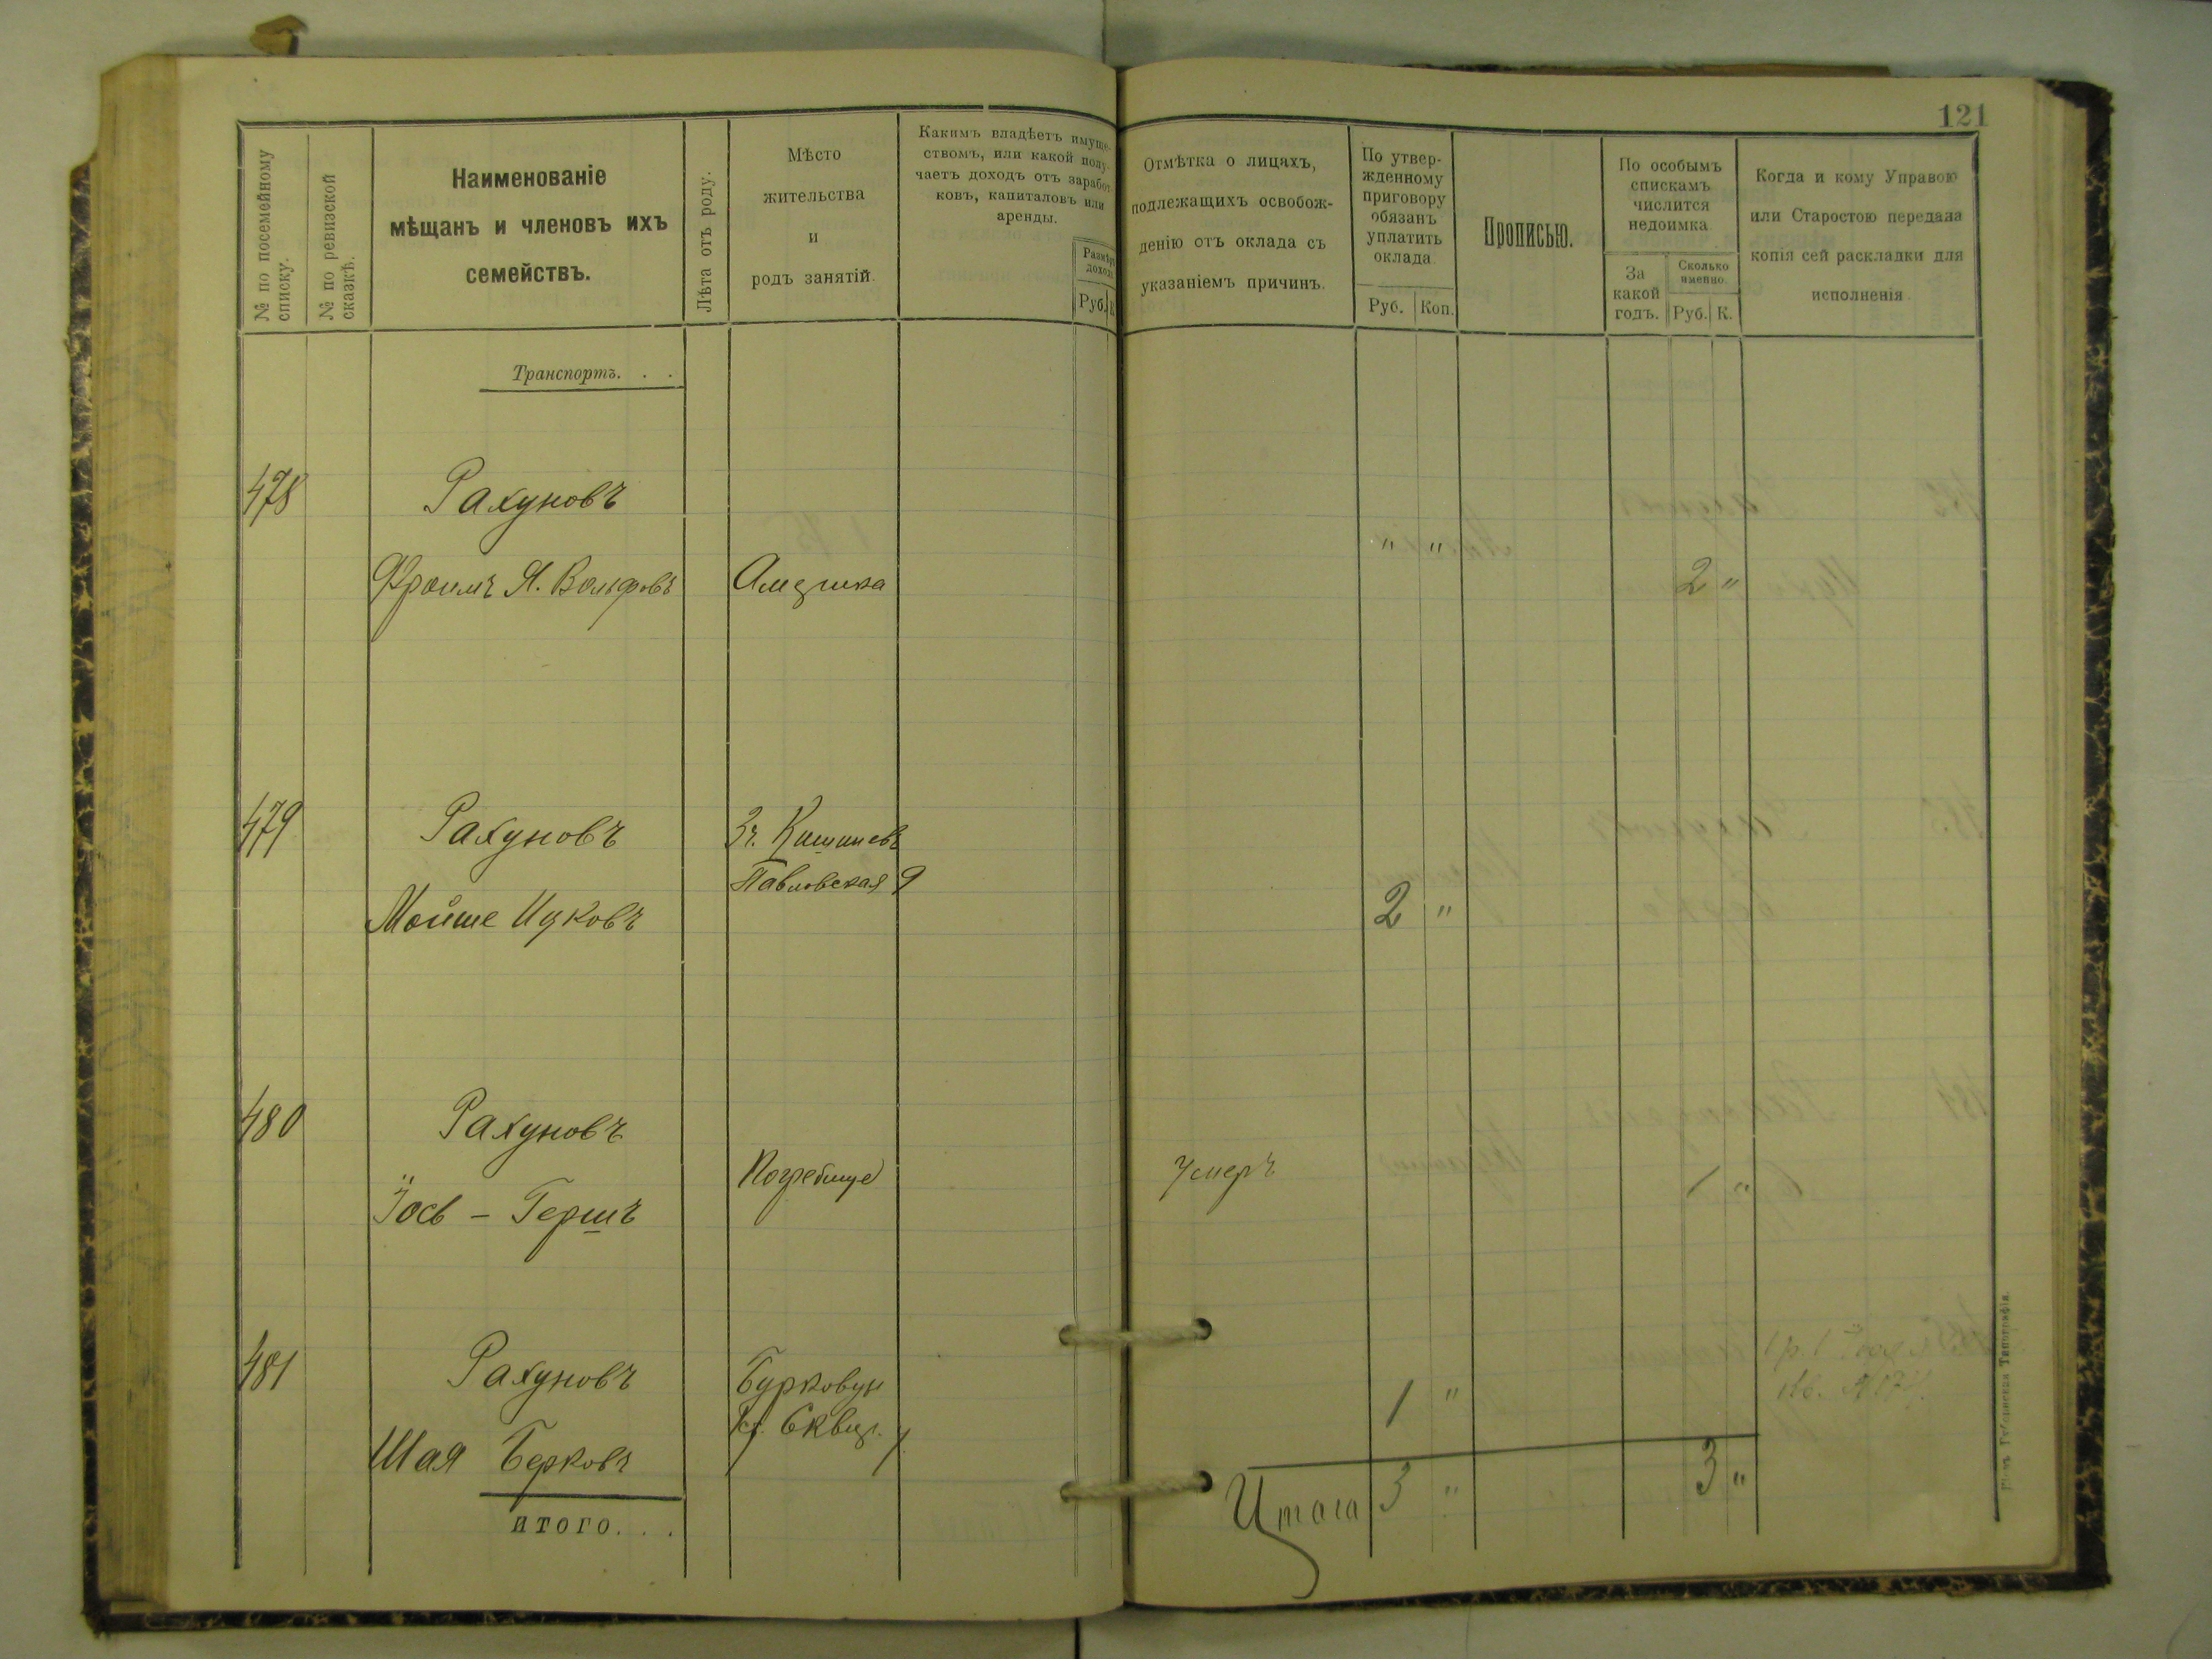 121
№ по посемейному
списку.
№ по ревизской
сказкѣ.
Наименованіе
мѣщанъ и членовъ ихъ
семействъ.
Лѣта отъ роду.
Мѣсто
жительства
и
родъ занятій.
Какимъ владѣетъ имуще-
ствомъ, или какой полу-
чаетъ доходъ отъ заработ-
ковъ, капиталовъ или
аренды.
Размѣръ
дохода
Руб.
Отмѣтка о лицахъ,
подлежащихъ освобож-
денію отъ оклада съ
указаніемъ причинъ.
По утвер-
жденному
приговору
обязанъ
уплатить
оклада.
Руб. Коп.
Прописью.
По особымъ
спискамъ
числится
недоимка
За
какой
годъ.
Сколько
именно.
Руб. К.
Когда и кому Управою
или Старостою передана
копія сей раскладки для
исполненія.
Транспортъ. . .
478 Рахуновъ
" "
Фроимъ Я. Вольфовъ Америка 2 "
479 Рахуновъ Кишиневъ
Павловская 9
Мойше Ицковъ 2 "
480 Рахуновъ
Погребище Умеръ 1 "
Іось - Гершъ
481 Рахуновъ
1 "
Шая Берковъ
Итого 3 " 3 "
ИТОГО. . .